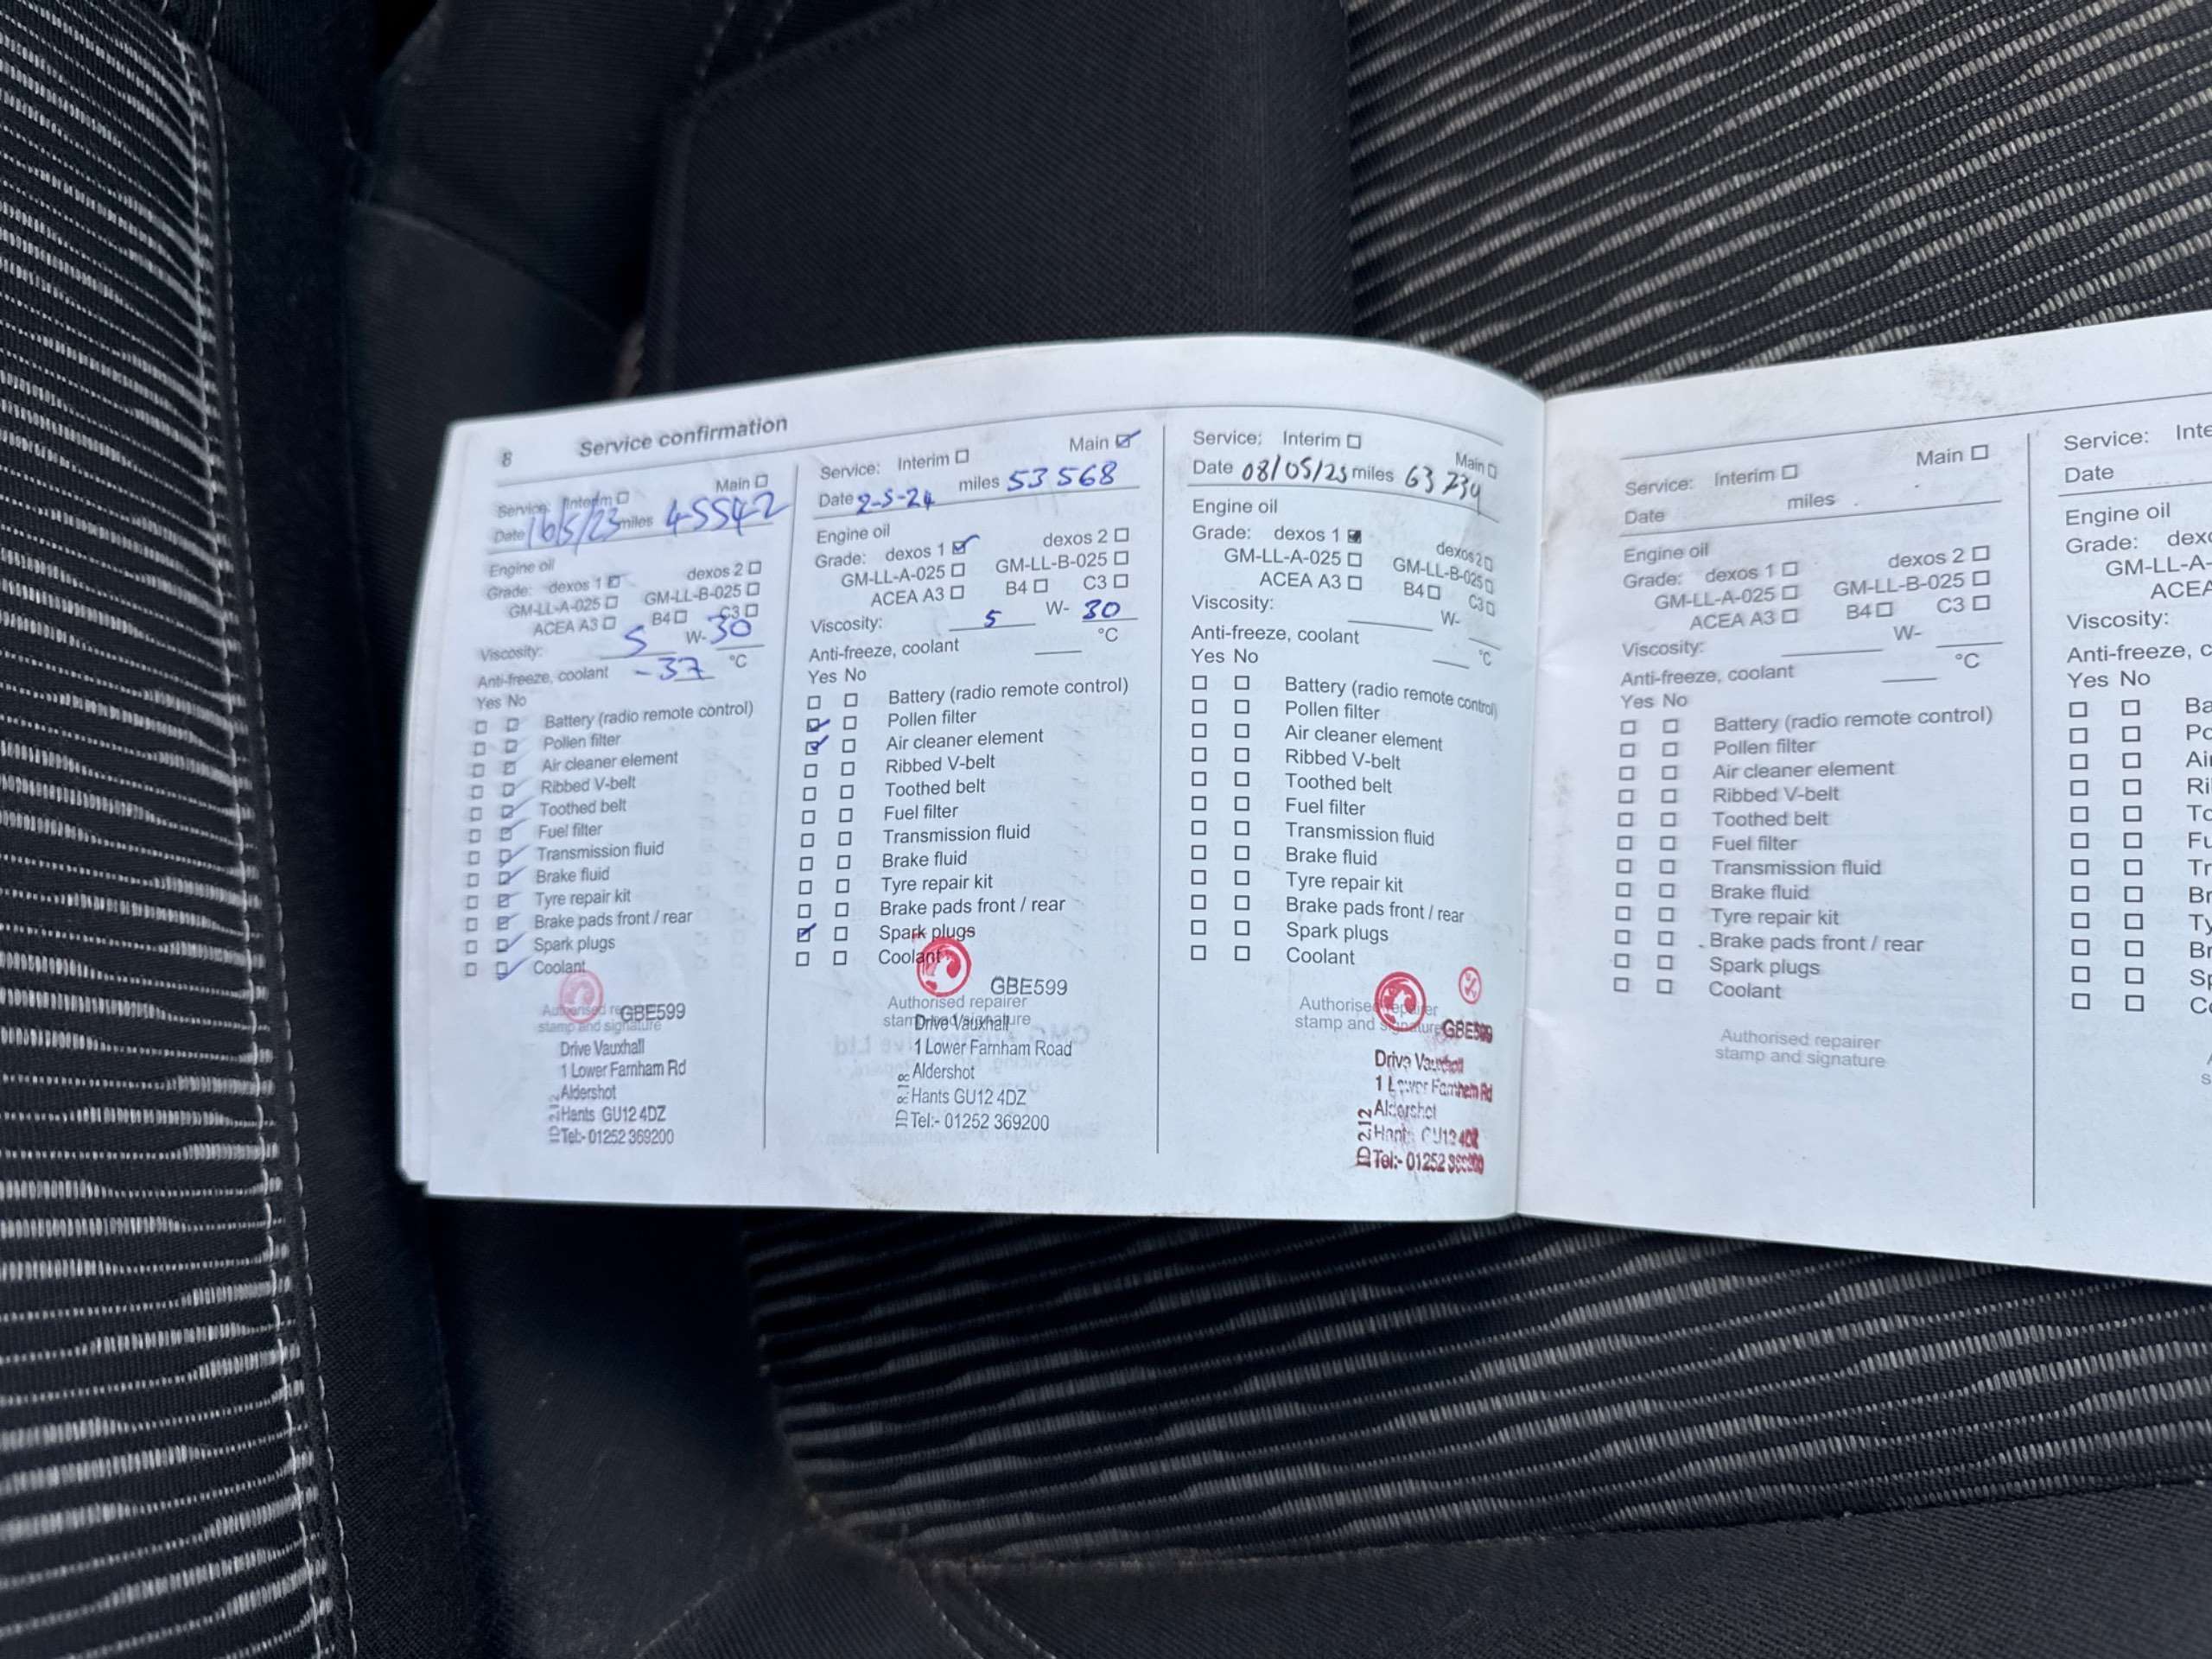 8 Service confirmation
Service: Interim Main
Date 16/5/23 miles 45542
Engine oil
Grade: dexos 1 dexos 2
GM-LL-A-025 GM-LL-B-025
ACEA A3 B4 C3
Viscosity: 5 W- 30
Anti-freeze, coolant -37 °C
Yes No
Battery (radio remote control)
Pollen filter
Air cleaner element
Ribbed V-belt
Toothed belt
Fuel filter
Transmission fluid
Brake fluid
Tyre repair kit
Brake pads front / rear
Spark plugs
Coolant
Authorised repairer
stamp and signature
GBE599
Drive Vauxhall
1 Lower Farnham Rd
Aldershot
Hants GU12 4DZ
Tel:- 01252 369200
Service: Interim Main
Date 2-5-24 miles 53568
Engine oil
Grade: dexos 1 dexos 2
GM-LL-A-025 GM-LL-B-025
ACEA A3 B4 C3
Viscosity: 5 W- 30
Anti-freeze, coolant °C
Yes No
Battery (radio remote control)
Pollen filter
Air cleaner element
Ribbed V-belt
Toothed belt
Fuel filter
Transmission fluid
Brake fluid
Tyre repair kit
Brake pads front / rear
Spark plugs
Coolant
GBE599
Authorised repairer
stamp and signature
Drive Vauxhall
1 Lower Farnham Road
Aldershot
Hants GU12 4DZ
Tel:- 01252 369200
Service: Interim Main
Date 08/05/25 miles 63734
Engine oil
Grade: dexos 1 dexos 2
GM-LL-A-025 GM-LL-B-025
ACEA A3 B4 C3
Viscosity: W-
Anti-freeze, coolant °C
Yes No
Battery (radio remote control)
Pollen filter
Air cleaner element
Ribbed V-belt
Toothed belt
Fuel filter
Transmission fluid
Brake fluid
Tyre repair kit
Brake pads front / rear
Spark plugs
Coolant
Authorised repairer
stamp and signature
GBE599
Drive Vauxhall
1 Lower Farnham Rd
Aldershot
Hants GU12 4DZ
ID 212 Tel:- 01252 369200
Service: Interim Main
Date miles
Engine oil
Grade: dexos 1 dexos 2
GM-LL-A-025 GM-LL-B-025
ACEA A3 B4 C3
Viscosity: W-
Anti-freeze, coolant °C
Yes No
Battery (radio remote control)
Pollen filter
Air cleaner element
Ribbed V-belt
Toothed belt
Fuel filter
Transmission fluid
Brake fluid
Tyre repair kit
Brake pads front / rear
Spark plugs
Coolant
Authorised repairer
stamp and signature
Service: Inte
Date
Engine oil
Grade: dexo
GM-LL-A-
ACEA
Viscosity:
Anti-freeze, c
Yes No
Ba
Po
Ai
Ri
To
Fu
Tr
Br
Ty
Br
Sp
Co